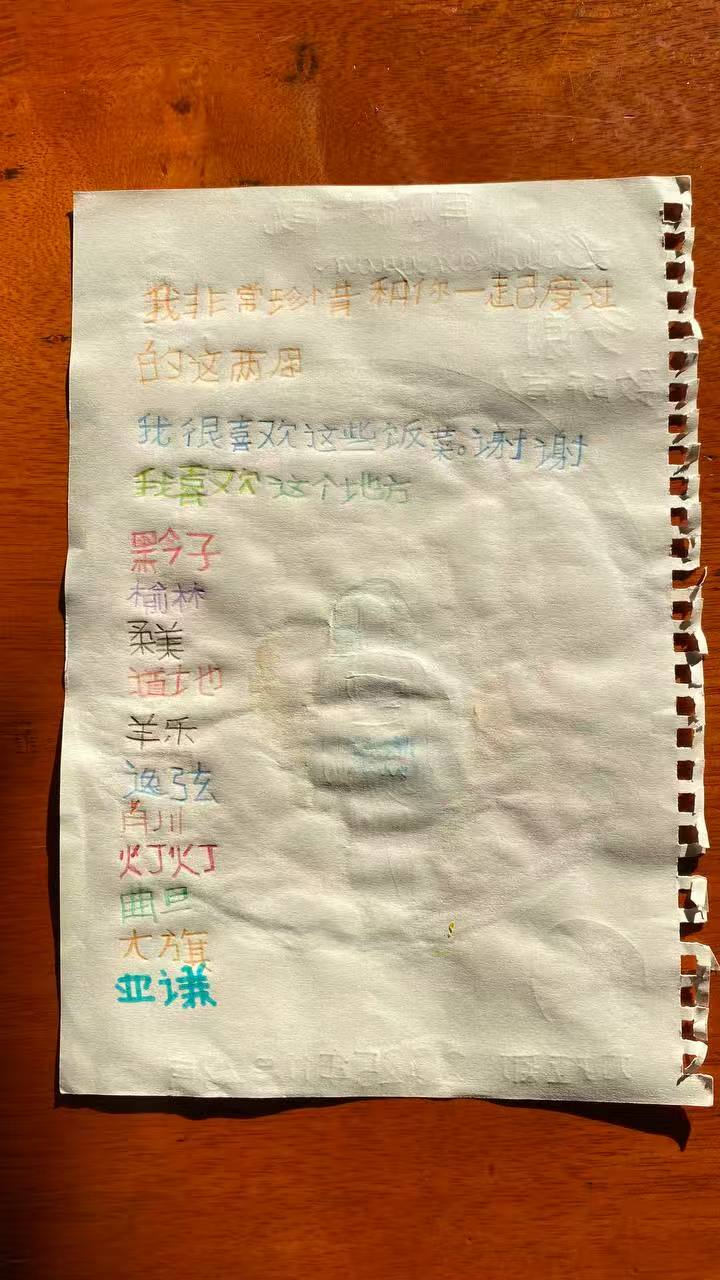 我非常珍惜和你一起度过
的这两周
我很喜欢这些饭菜。谢谢
我喜欢这个地方
黔子
榆林
柔美
道地
羊乐
逸弦
肖川
灯灯
曲旦
大旗
亚谦